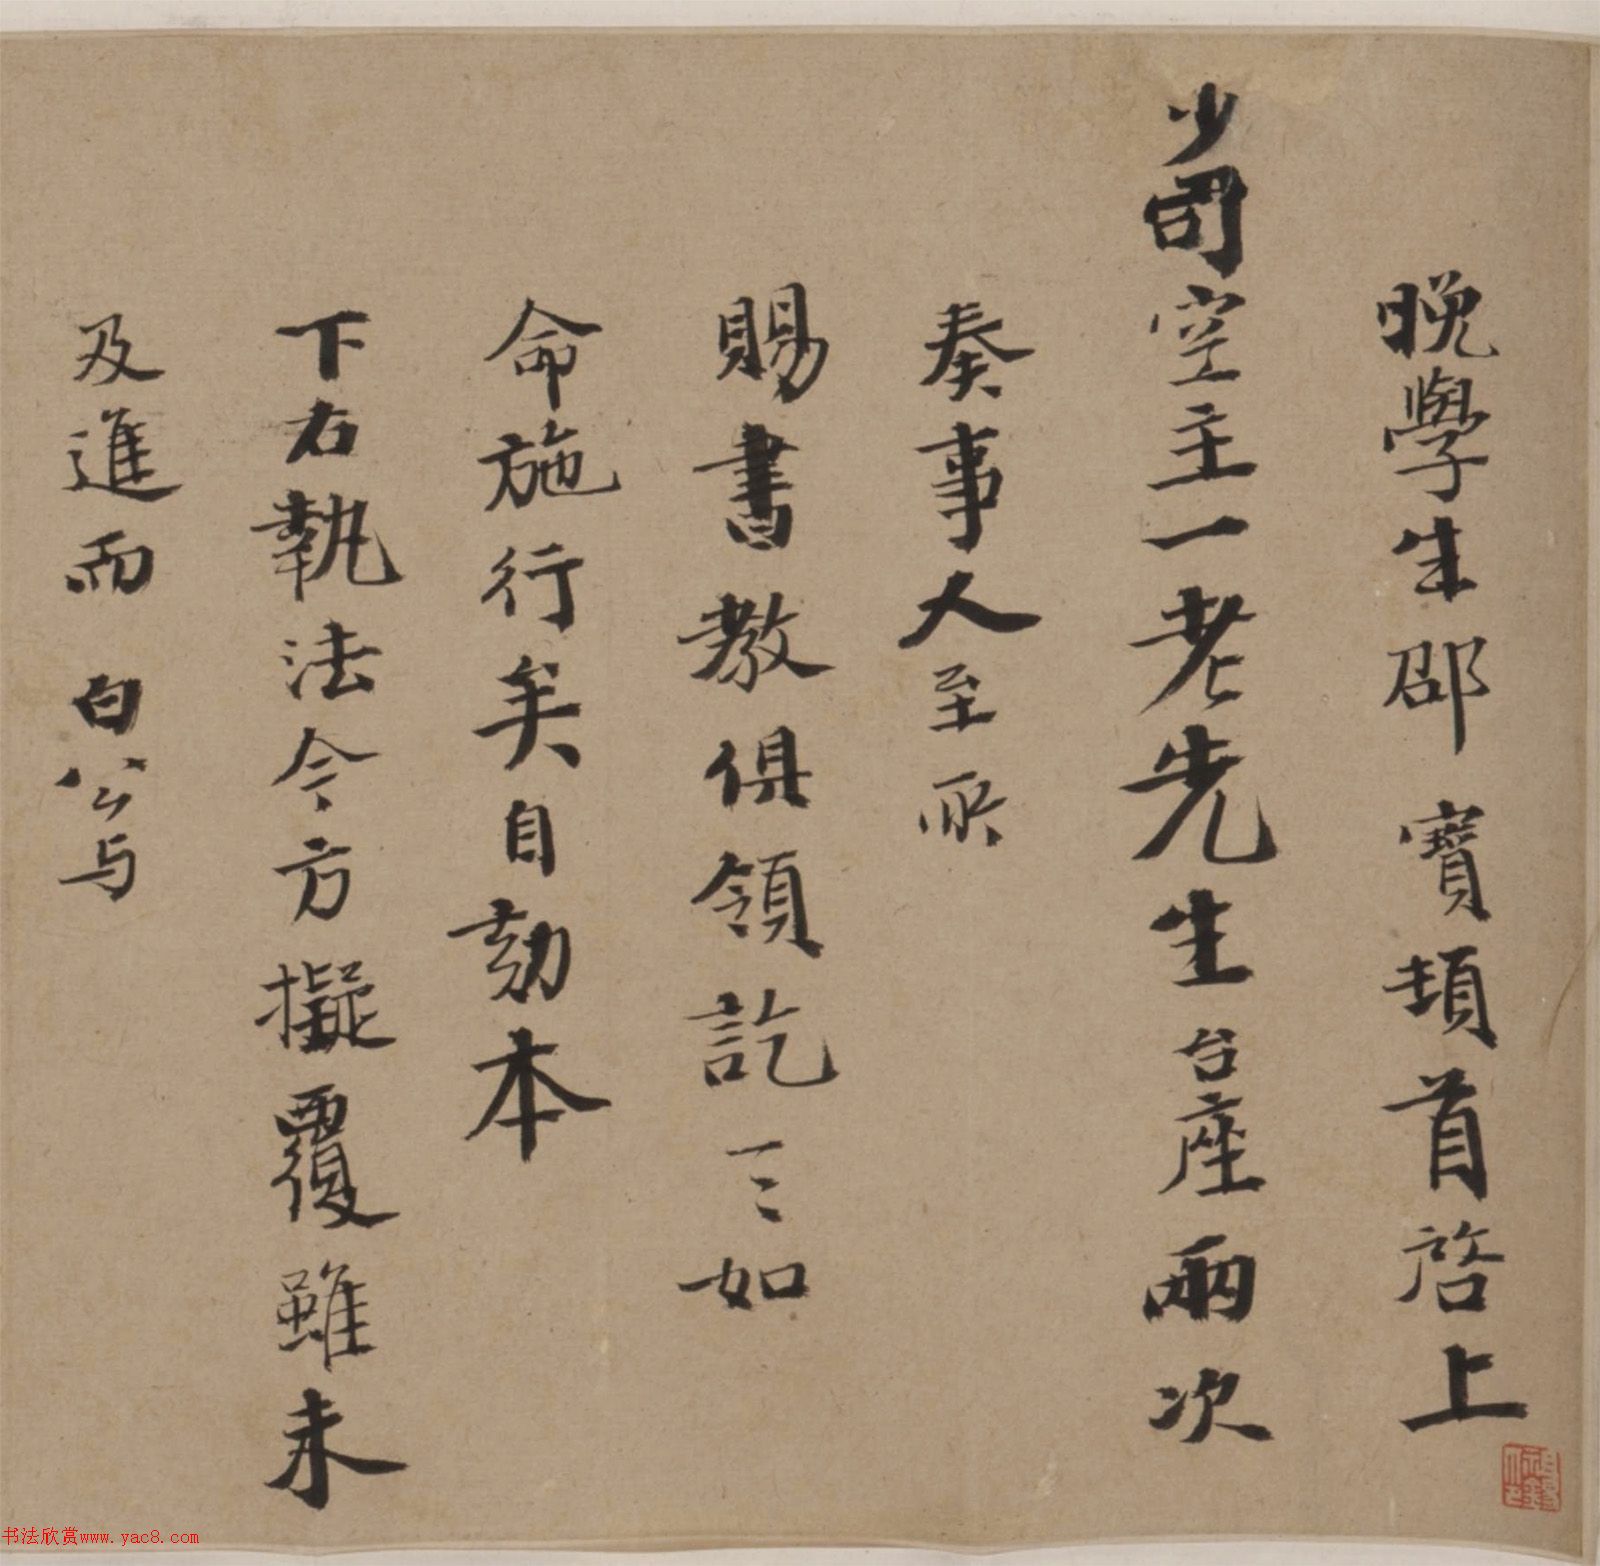 晚學生邵寶頓首啓上
少司空主一老先生台座兩次
奏事人至所
賜書教俱領訖一二如
命施行矣自劾本
下右執法令方擬覆雖未
及進而白公与
书法欣赏www.yac8.com